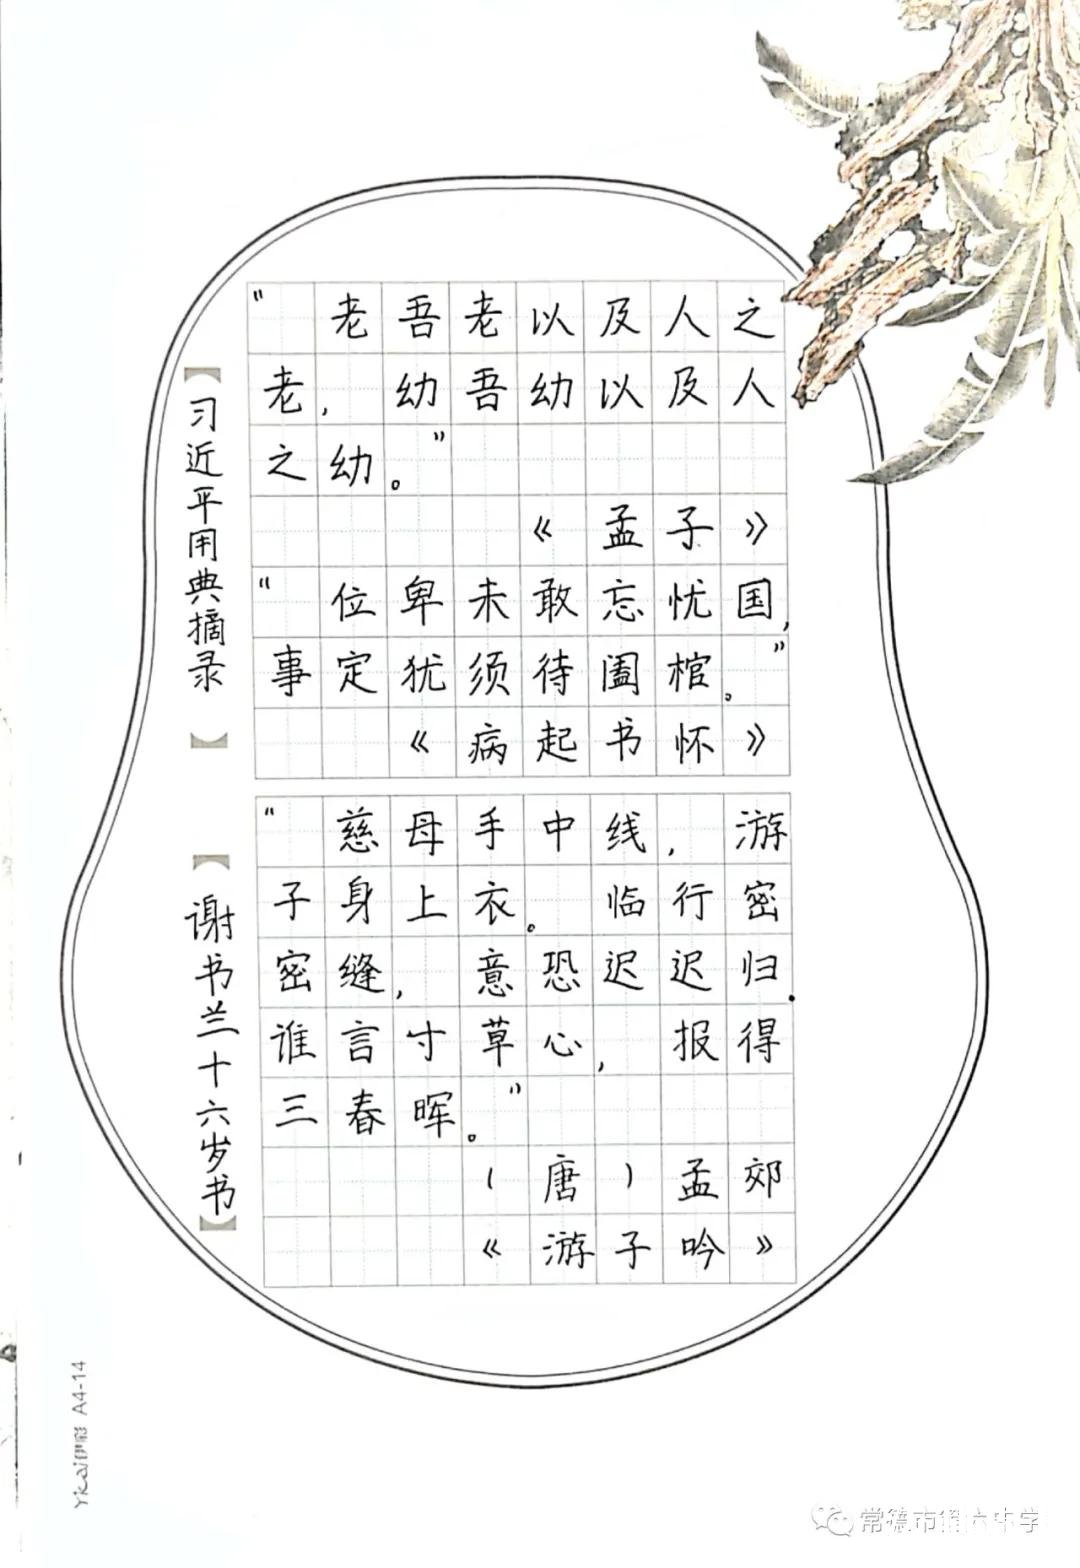 “老吾老以及人之
老，幼吾幼以及人
之幼。”
《孟子》
“位卑未敢忘忧国，
事定犹须待阖棺。”
《病起书怀》
“慈母手中线，游
子身上衣。临行密
密缝，意恐迟迟归.
谁言寸草心，报得
三春晖。”
（唐）孟郊
《游子吟》
【习近平用典摘录】
【谢书兰十六岁书】
YKai伊彩 A4-14
常德市第六中学